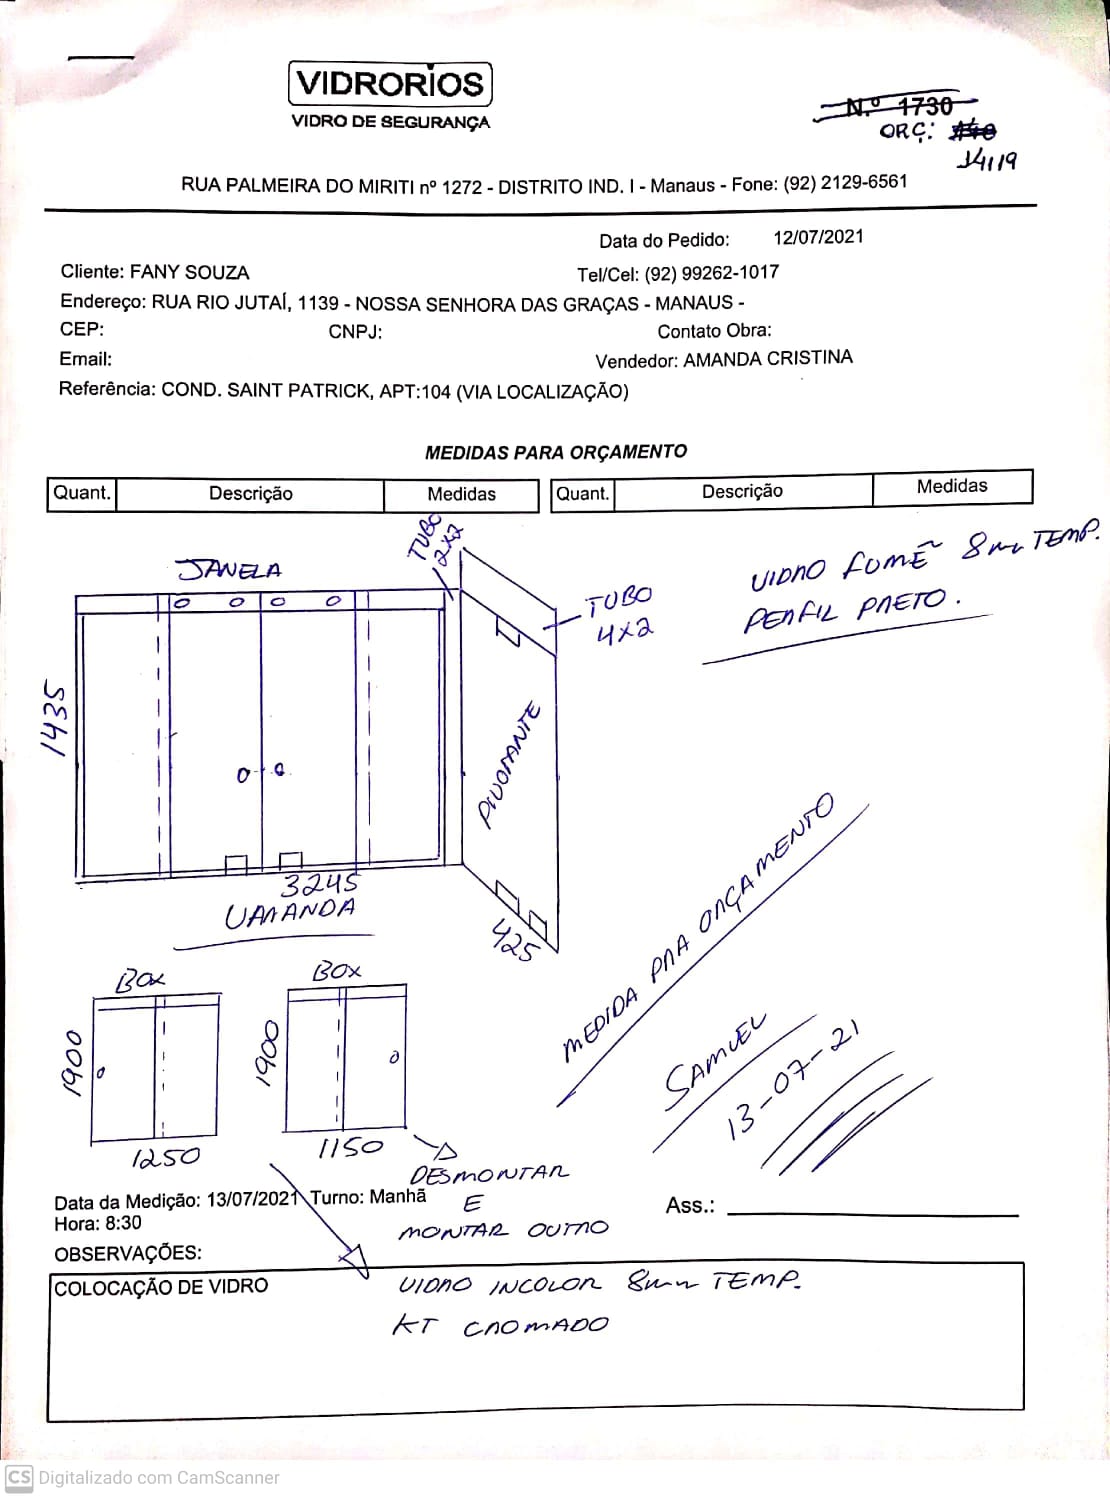 VIDRORIOS
VIDRO DE SEGURANÇA
N.º 1730
ORÇ:
14119
RUA PALMEIRA DO MIRITI nº 1272 - DISTRITO IND. I - Manaus - Fone: (92) 2129-6561
Data do Pedido: 12/07/2021
Cliente: FANY SOUZA Tel/Cel: (92) 99262-1017
Endereço: RUA RIO JUTAÍ, 1139 - NOSSA SENHORA DAS GRAÇAS - MANAUS -
CEP: CNPJ: Contato Obra:
Email: Vendedor: AMANDA CRISTINA
Referência: COND. SAINT PATRICK, APT:104 (VIA LOCALIZAÇÃO)
MEDIDAS PARA ORÇAMENTO
Quant. Descrição Medidas Quant. Descrição Medidas
TUBO
2X2
JANELA
VIDRO FUMÊ 8mm TEMP.
PERFIL PRETO.
TUBO
4X2
1435
PIVOTANTE
3245
VARANDA
425
MEDIDA PRA ORÇAMENTO
BOX
BOX
1900
1900
1250
1150
SAMUEL
13-07-21
DESMONTAR
E
MONTAR OUTRO
Data da Medição: 13/07/2021 Turno: Manhã
Hora: 8:30
Ass.:
OBSERVAÇÕES:
COLOCAÇÃO DE VIDRO
VIDRO INCOLOR 8mm TEMP.
KT CROMADO
CS Digitalizado com CamScanner